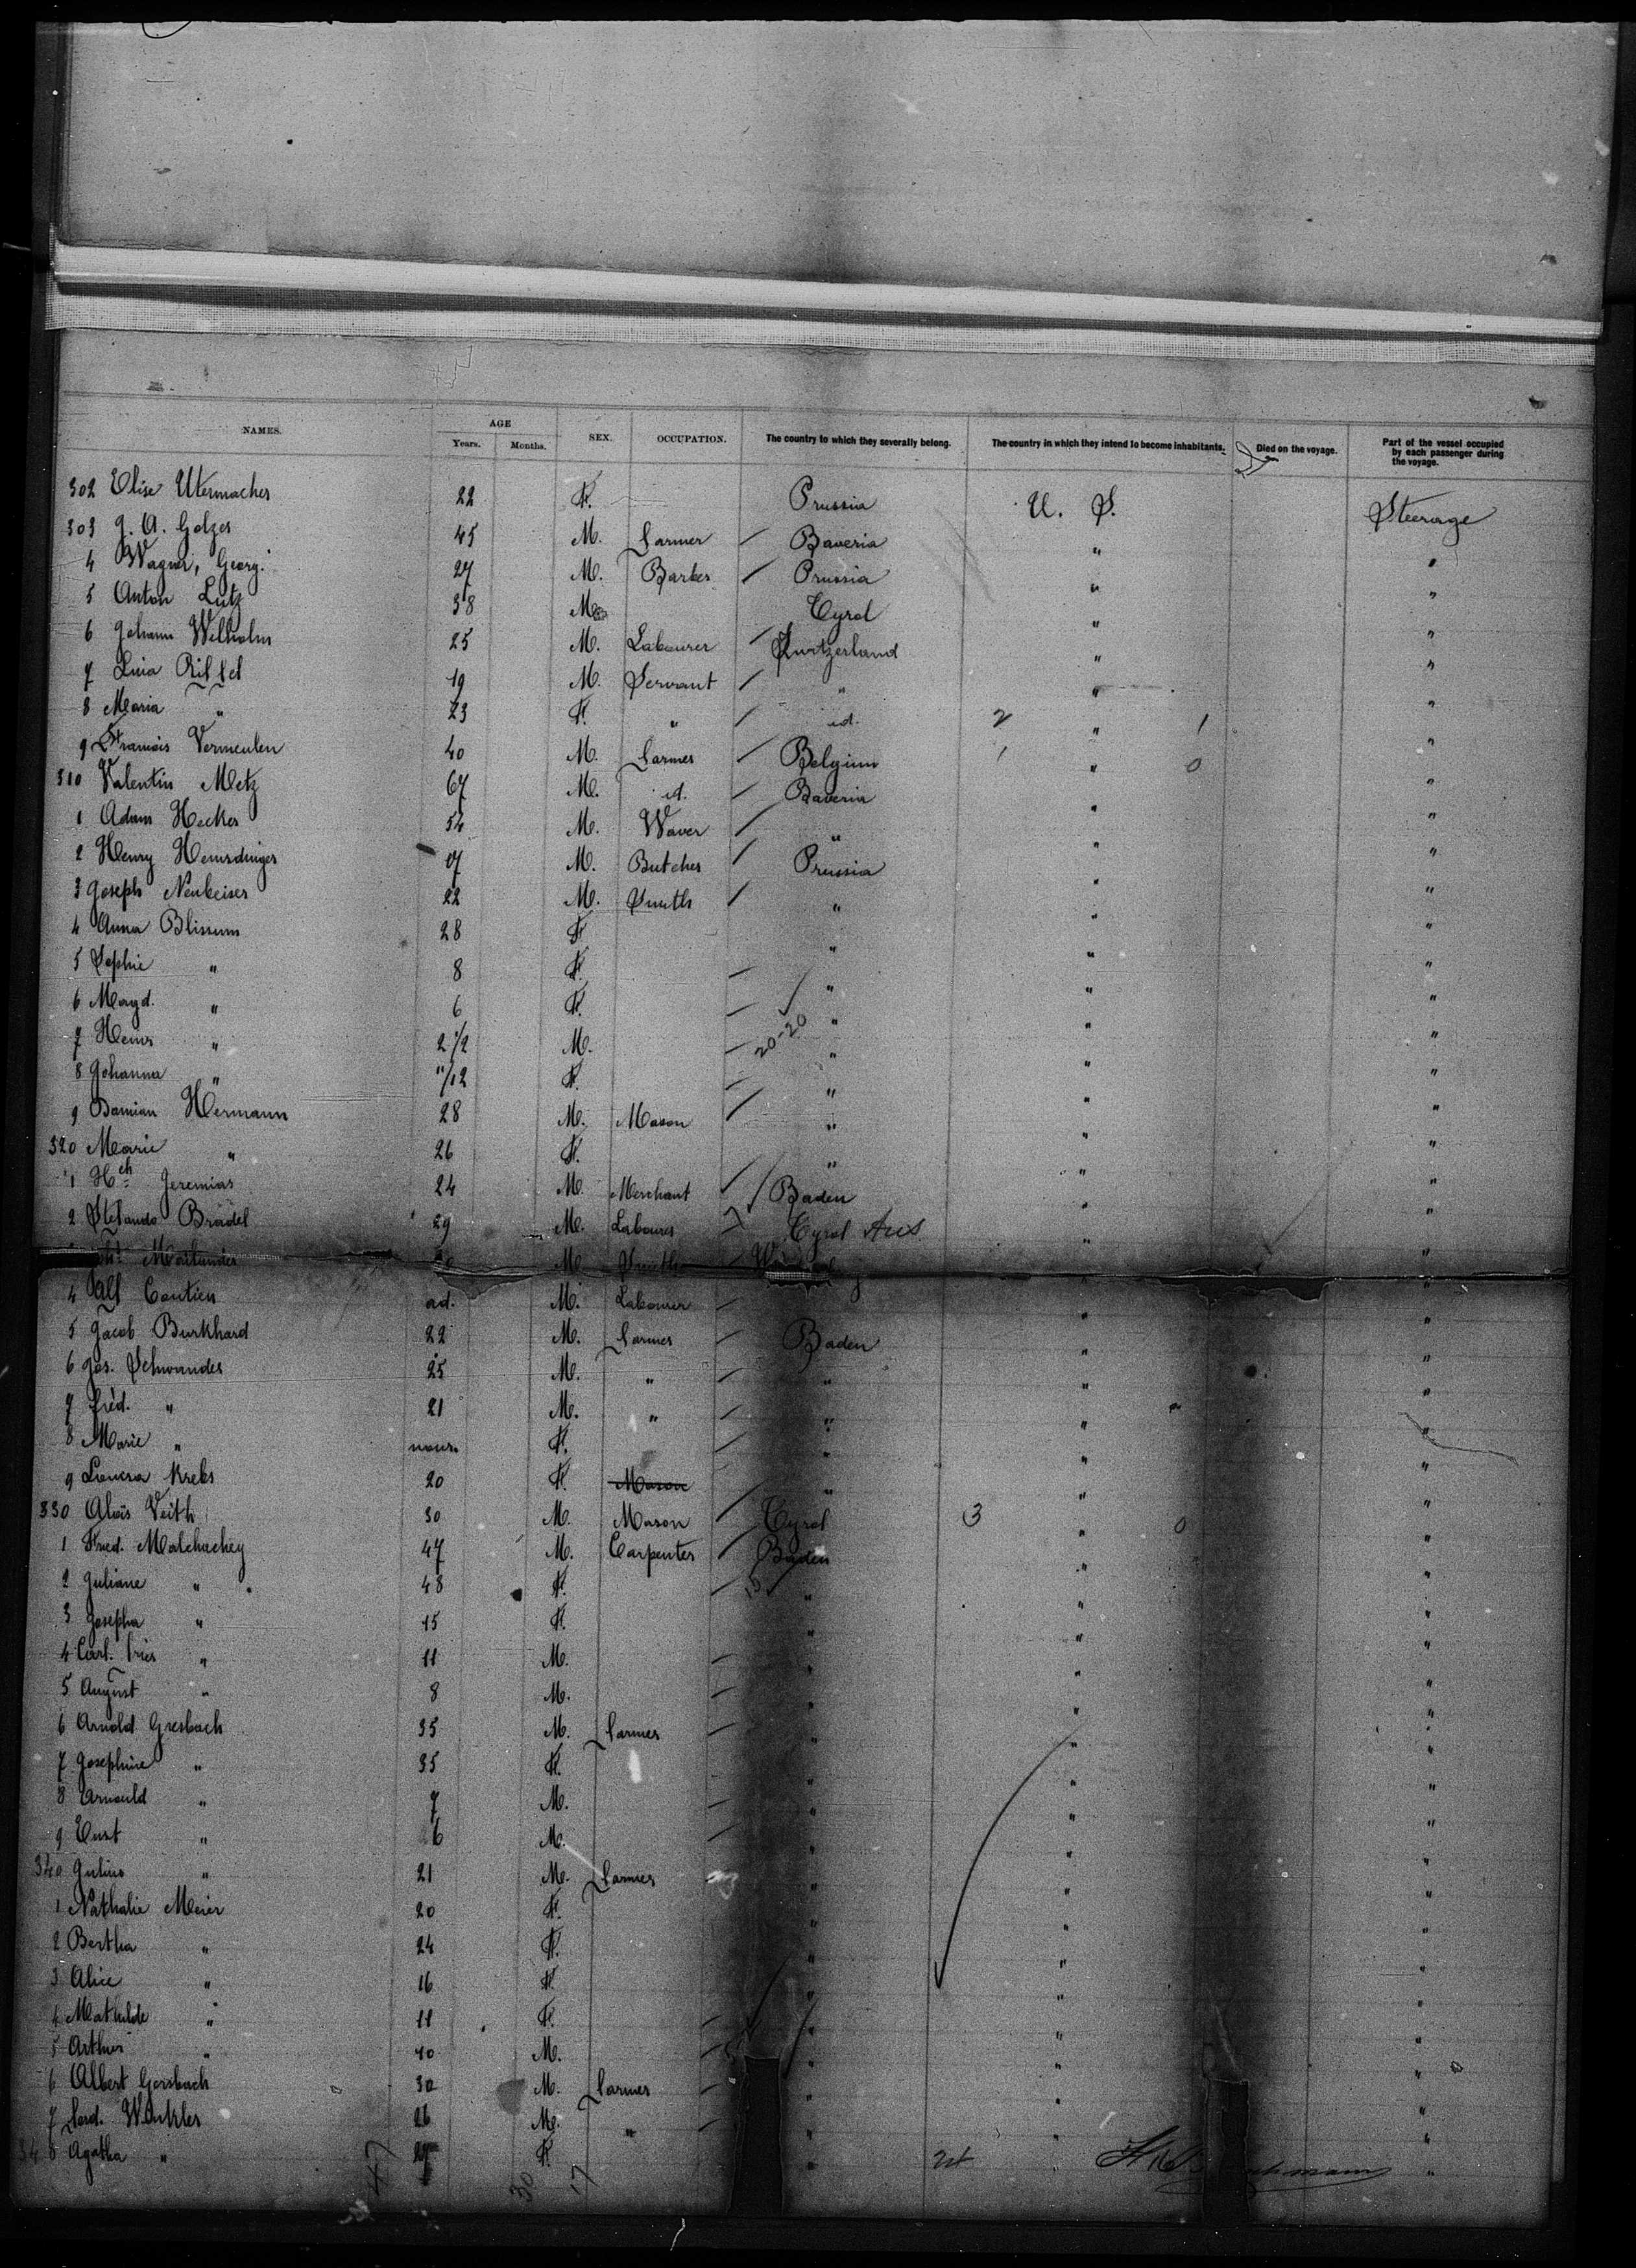 NAMES. AGE Years. Months. SEX. OCCUPATION. The country to which they severally belong. The country in which they intend to become inhabitants. Died on the voyage. Part of the vessel occupied by each passenger during the voyage.
302 Elise Utermacher 22 F. Prussia U. S. Steerage
303 J. A. Golzer 45 M. Farmer Baveria " "
4 Wagner, Georg. 27 M. Barber Prussia " "
5 Anton Lutz 38 M. Tyrol " "
6 Johann Wilhelm 25 M. Labourer Switzerland " "
7 Livia 19 M. Servant " " "
8 Maria " 23 F. " id. 2 " 1 "
9 Francois Vermeulen 40 M. Farmer Belgium 1 " 0 "
310 Valentin Metz 67 M. id. Baveria " "
1 Adam Hecker 54 M. Waver " " "
2 Henry 17 M. Butcher Prussia " "
3 Joseph Neubeiser 22 M. Smith " " "
4 Anna Blissum 28 F " " "
5 Sophie " 8 F. " " "
6 Magd. " 6 F. " " "
7 Henr " 2 1/2 M. 20-20 " " "
8 Johanna " 11/12 F. " " "
9 Damian Hermann 28 M. Mason " " "
320 Marie " 26 F. " " "
1 Hch Jeremias 24 M. Merchant Baden " "
2 Bradel 29 M. Labourer Tyrol Aus " "
M. Smith "
4 Alf Contien ad. M. Labourer " "
5 Jacob Burkhard 22 M. Farmer Baden " "
6 Jos. Schwander 25 M. " " " "
7 Fréd. " 21 M. " " " "
8 Marie " nour. F. " " "
9 Krebs 20 F. Mason " " "
330 Alois Veith 30 M. Mason Tyrol 3 " 0 "
1 Fred. Malchachey 47 M. Carpenter Baden " "
2 Juliane " 48 F. 15 " " "
3 Josepha " 15 F. " " "
4 Carl. " 11 M. " " "
5 August " 8 M. " " "
6 Arnold Gresbach 35 M. Farmer " " "
7 Josephine " 35 F. " " "
8 Arnould " 7 M. " " "
9 " 6 M. " " "
340 Julius " 21 M. Farmer " " "
1 Nathalie Meier 20 F. " " "
2 Bertha " 24 F. " " "
3 Alice " 16 F. " " "
4 Mathilde " 11 F. " " "
5 Arthur " 10 M. " " "
6 Albert Gersbach 30 M. Farmer " " "
7 Ferd. Winkler 26 M. " " " "
348 Agatha " 27 F. " 24 " "
47 30 17